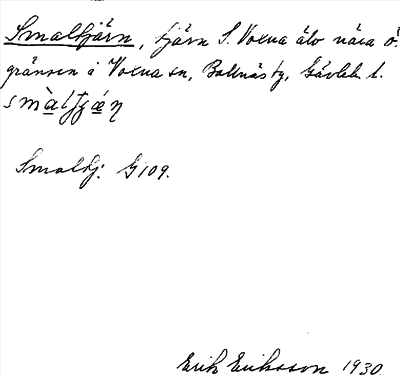 Smaltjärn, tjärn S. Voxna älv nära ö.
gränsen å Voxna sn, Bollnäs tg, Gävleb. l.
smàltjǽn
Smaltj. G109.
Erik Eriksson 1930.